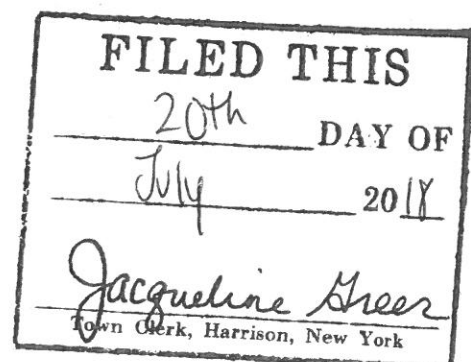 FILED THIS
20th DAY OF
July 2018
Jacqueline Greer
Town Clerk, Harrison, New York